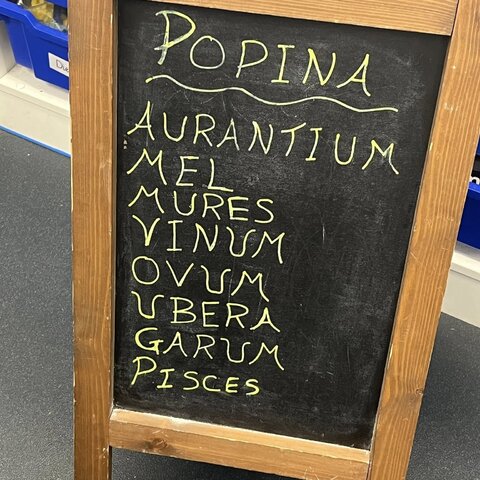 POPINA
AURANTIUM
MEL
MURES
VINUM
OVUM
UBERA
GARUM
PISCES